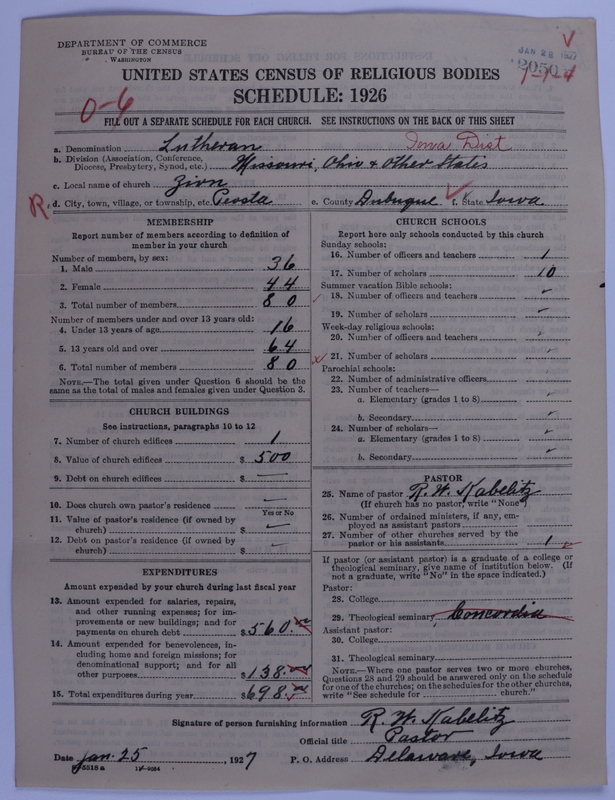 DEPARTMENT OF COMMERCE
BUREAU OF THE CENSUS
WASHINGTON
JAN 28 1927
UNITED STATES CENSUS OF RELIGIOUS BODIES
SCHEDULE: 1926
0-6
FILL OUT A SEPARATE SCHEDULE FOR EACH CHURCH. SEE INSTRUCTIONS ON THE BACK OF THIS SHEET
a. Denomination Lutheran Iowa Dist
b. Division (Association, Conference, Diocese, Presbytery, Synod, etc.) Missouri, Ohio & Other States
c. Local name of church Zion
R d. City, town, village, or township, etc. Peosta e. County Dubuque f. State Iowa
MEMBERSHIP
Report number of members according to definition of
member in your church
Number of members, by sex:
1. Male 36
2. Female 44
3. Total number of members 80
Number of members under and over 13 years old:
4. Under 13 years of age 16
5. 13 years old and over 64
6. Total number of members 80
NOTE.—The total given under Question 6 should be
same as the total of males and females given under Question 3.
CHURCH BUILDINGS
See instructions, paragraphs 10 to 12
7. Number of church edifices 1
8. Value of church edifices $ 500
9. Debt on church edifices $ —
10. Does church own pastor's residence —
Yes or No
11. Value of pastor's residence (if owned by
church) $
12. Debt on pastor's residence (if owned by
church) $
EXPENDITURES
Amount expended by your church during last fiscal year
13. Amount expended for salaries, repairs,
and other running expenses; for im-
provements or new buildings; and for
payments on church debt $ 560.
14. Amount expended for benevolences, in-
cluding home and foreign missions; for
denominational support; and for all
other purposes $ 138.
15. Total expenditures during year $ 698.
CHURCH SCHOOLS
Report here only schools conducted by this church
Sunday schools:
16. Number of officers and teachers 1
17. Number of scholars 10
Summer vacation Bible schools:
18. Number of officers and teachers
19. Number of scholars
Week-day religious schools:
20. Number of officers and teachers
21. Number of scholars
Parochial schools:
22. Number of administrative officers
23. Number of teachers—
a. Elementary (grades 1 to 8)
b. Secondary
24. Number of scholars—
a. Elementary (grades 1 to 8)
b. Secondary
PASTOR
25. Name of pastor R. W. Kabelitz
(If church has no pastor, write "None")
26. Number of ordained ministers, if any, em-
ployed as assistant pastors
27. Number of other churches served by the
pastor or his assistants 1
If pastor (or assistant pastor) is a graduate of a college or
theological seminary, give name of institution below. (If
not a graduate, write "No" in the space indicated.)
Pastor:
28. College
29. Theological seminary Concordia
Assistant pastor:
30. College
31. Theological seminary
NOTE.—Where one pastor serves two or more churches,
Questions 28 and 29 should be answered only on the schedule
for one of the churches; on the schedules for the other churches,
write "See schedule for church."
Signature of person furnishing information R. W. Kabelitz
Official title Pastor
Date Jan. 25, 1927 P. O. Address Delaware, Iowa